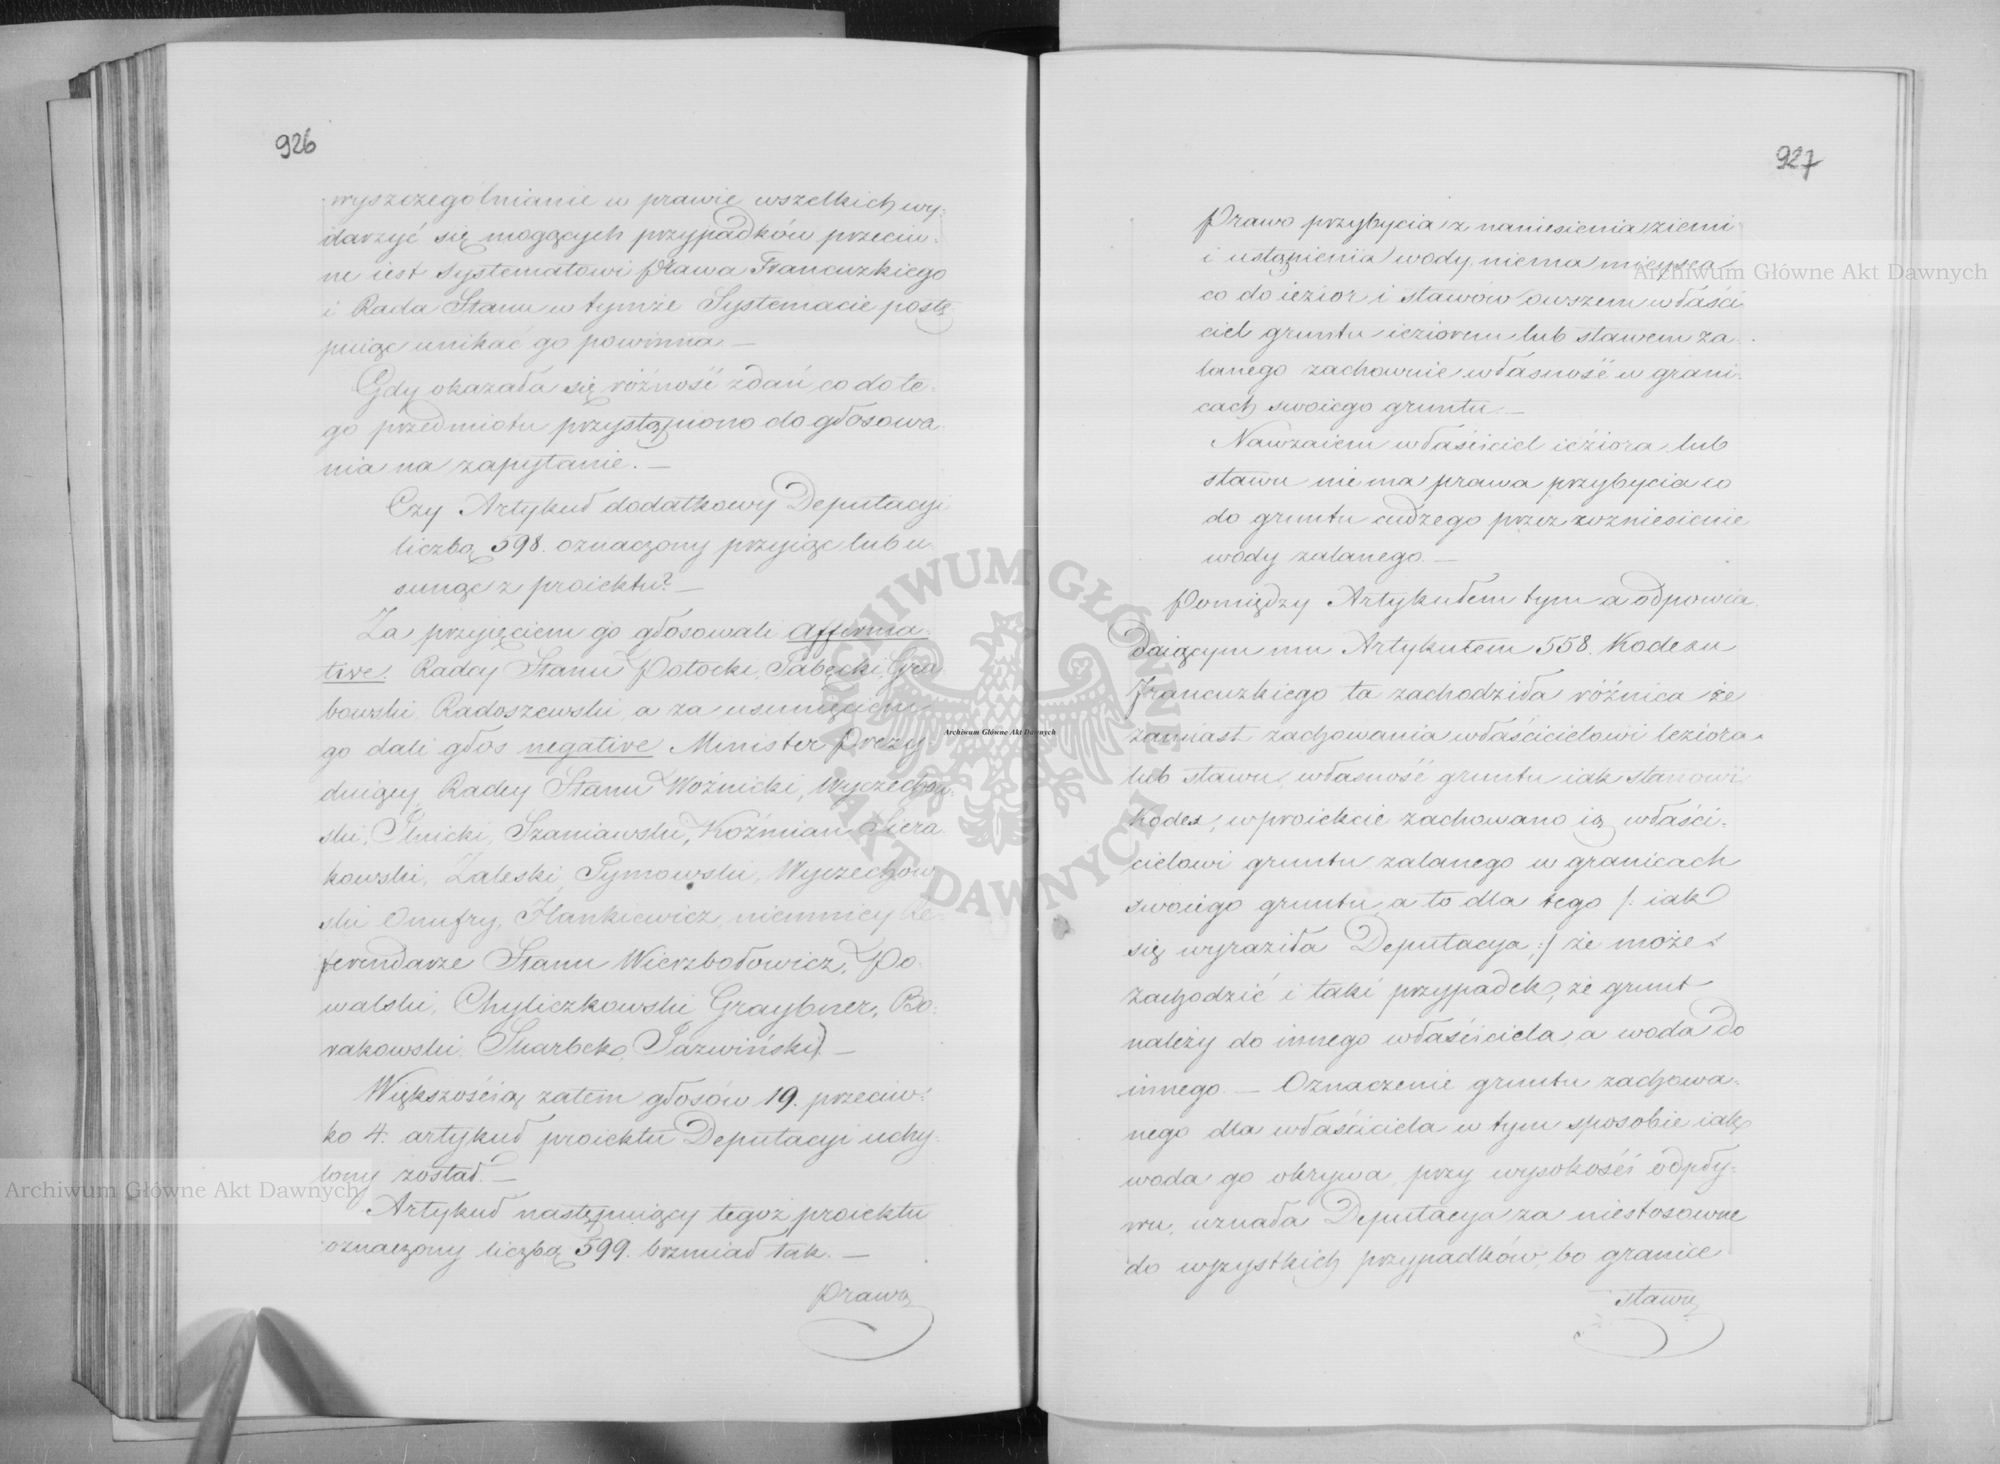 926
wyszczególnianie w prawie wszelkich wy-
darzyć się mogących przypadków przeciw-
ne iest systematowi prawa Francuzkiego
i Rada Stanu w tymże Systemacie postę-
puiąc unikać go powinna —
Gdy okazała się różność zdań co do te-
go przedmiotu przystąpiono do głosowa-
nia na zapytanie. —
Czy Artykuł dodatkowy Deputacyi
liczbą 598. oznaczony przyiąc lub u-
sunąc z proiektu? —
Za przyjęciem go głosowali affirma-
tive. Radcy Stanu Potocki, Gra-
bowski, Radoszewski, a za usunięciem
go dali głos negative Minister Prezy-
duiący, Radcy Stanu Woźnicki, Wyczechow-
ski, Szaniawski, Koźmian, Siera-
kowski, Zaleski, Tymowski, Wyczechow-
ski Onufry, Hankiewicz, niemniey Re-
ferendarze Stanu Wierzbołowicz, Po-
walski, Chyliczkowski, Graybner, Bo-
rakowski, Skarbek,
Większością zatem głosów 19. przeciw-
ko 4. artykuł proiektu Deputacyi uchy-
lony został. —
Artykuł następuiący tegoż proiektu
oznaczony liczbą 599. brzmiał tak. —
Prawo
927
Prawo przybycia z naniesienia ziemi
i ustąpienia wody, niema mieysca
co do iezior i stawów owszem właści-
ciel gruntu ieziorem lub stawem za-
lanego zachowuie własność w grani-
cach swoiego gruntu —
Nawzaiem właściciel ieziora lub
stawu nie ma prawa przybycia co
do gruntu cudzego przez wzniesienie
wody zalanego. —
Pomiędzy Artykułem tym a odpowia-
daiącym mu Artykułem 558. Kodexu
Francuzkiego ta zachodziła różnica że
zamiast zachowania właścicielowi ieziora
lub stawu, własność gruntu iak stanowi
Kodex, w proiekcie zachowano ią właści-
cielowi gruntu zalanego w granicach
swoiego gruntu, a to dla tego /: iak
się wyraziła Deputacya :/ że może
zachodzić i taki przypadek, że grunt
należy do innego właściciela, a woda do
innego. — Oznaczenie gruntu zachowa-
nego dla właściciela w tym sposobie iak
woda go okrywa, przy wysokości odpły-
wu, uznała Deputacya za niestosowne
do wszystkich przypadków, bo granice
stawu
Archiwum Główne Akt Dawnych
Archiwum Główne Akt Dawnych
Archiwum Główne Akt Dawnych
ARCHIWUM GŁÓWNE AKT DAWNYCH